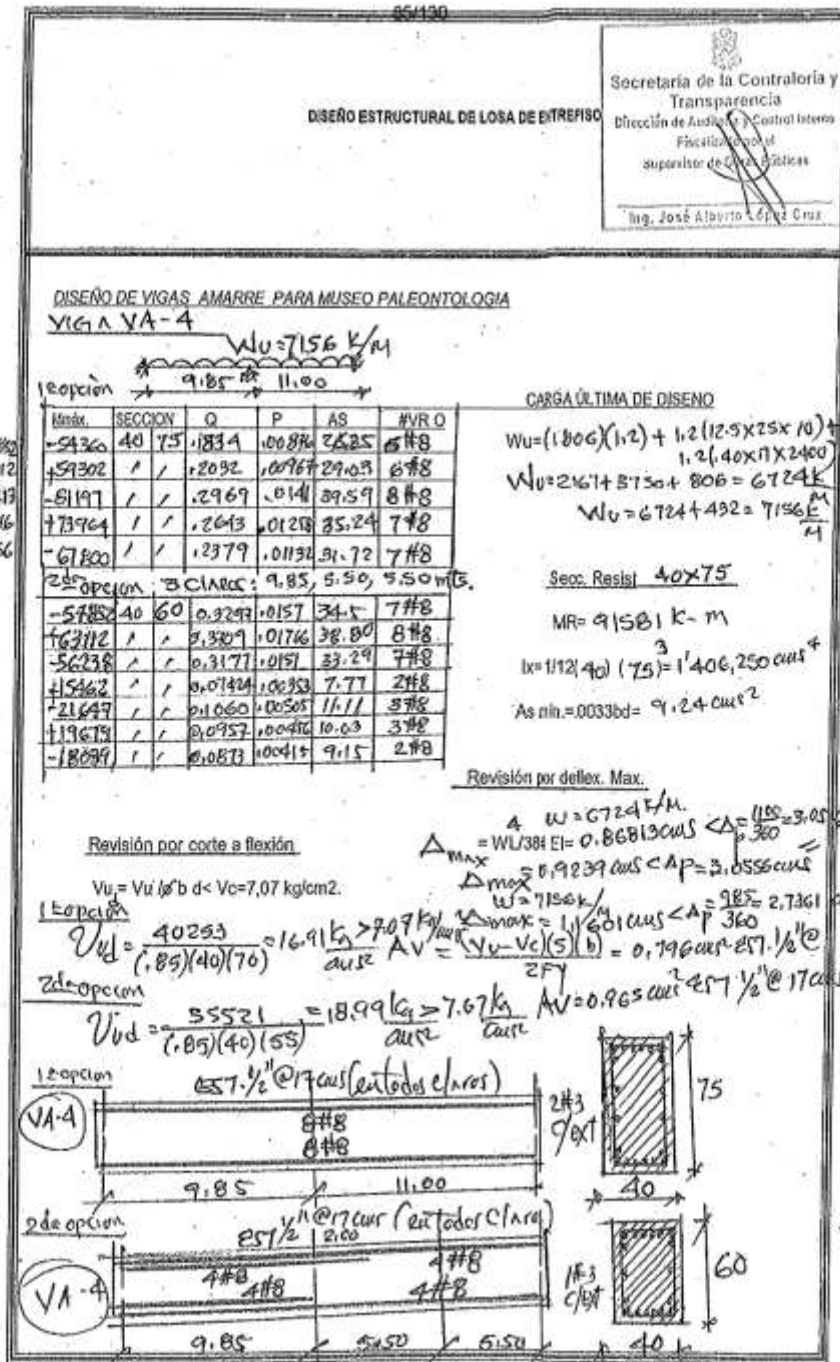 85/130
DISEÑO ESTRUCTURAL DE LOSA DE ENTREPISO
Secretaría de la Contraloría y
Transparencia
Dirección de Auditoría y Control Interno
Fiscalizado por el
Supervisor de Obras Públicas
Ing. José Alberto López Cruz
DISEÑO DE VIGAS AMARRE PARA MUSEO PALEONTOLOGIA
VIGA VA-4
Wu=7156 K/M
9.85 11.00
1a opción
Mmáx. SECCION Q P AS #VR O
-54360 40 75 .1834 .00876 #8
+59302 " " .2032 .00967 29.03 6#8
-81197 " " .2969 .0141 39.59 8#8
+73964 " " .2643 .01258 35.24 7#8
-67800 " " .2379 .01132 31.72 7#8
2da opcion : 3 Claros: 9.85, 5.50, 5.50 mts.
-57852 40 60 0.3297 .0157 34.5 7#8
+63112 " " .01766 38.80 8#8
-56238 " " 0.3177 .0151 33.29 7#8
+15462 " " 0.07424 .00353 7.77 2#8
-21647 " " 0.1060 .00505 11.11 3#8
+19679 " " 0.0957 .00456 10.03 3#8
" " 0.0873 .00415 9.15 2#8
CARGA ÚLTIMA DE DISEÑO
Wu=(1806)(1.2) + 1.2(12.5X25X10)+
1.2(.40X.7)X2400
Wu=2167+3750+ 806= 6724 K
Wu=6724+432= 7156 K/M
Secc. Resist 40X75
MR= 91581 K-M
Ix=1/12(40)(75)³=1'406,250 cms⁴
As min.=.0033bd= 9.24 cms²
Revisión por deflex. Max.
W=6724 K/M.
Δmax = WL⁴/384 EI= 0.86813 cms <Δp=1100/360=3.05
Δmax =0.9239 cms <Δp=3.0556 cms
W=7156 K/M
Δmax = <Δp=985/360= 2.7361
Revisión por corte a flexión
Vu = Vu /ø b d< Vc=7,07 kg/cm2.
1a opción
Vud = 40253/(.85)(40)(70) =16.91 Kg/cms² >7.07 Kg/cms² AV = (Vu-Vc)(S)(b)/2Fy = 0.796 cms² EST. 1/2"@
2da opcion
Vud = 35521/(.85)(40)(55) =18.99 Kg/cms² > 7.07 Kg/cms² AV=0.963 cms² EST 1/2"@ 17 cms
1a opcion
EST. 1/2"@17 cms (en todos c/aros)
VA-4
8#8
8#8
2#3
C/EXT
75
9.85 11.00
40
2da opcion
EST 1/2"@17 cms (en todos C/aros)
2.00
4#8
4#8
4#8
4#8
VA-4
1#3
C/EXT
60
9.85 5.50 5.50
40